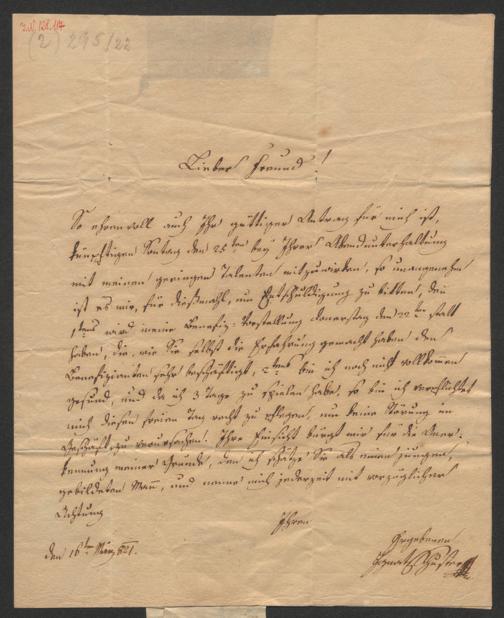 I.N. 128.117
(2) 295/22
Lieber Freund!
So ehrenvoll auch Ihr gütiger Antrag für mich ist,
künftigen Sontag den 25ten bey Ihrer Abendunterhaltung
mit meinen geringen Talenten mitzuwirken, so unangenehm
ist es mir, für dießmahl, um Entschuldigung zu bitten, den
1tens wird meine Benefiz-Vorstellung Donnerstag den 22ten statt
haben, die, wie Sie selbst die Erfahrung gemacht haben den
Benefizianten sehr beschäftigt, 2tens bin ich noch nicht vollkommen
gesund, und da ich 3 Tage zu spielen habe, so bin ich verpflichtet
mich diesen freien Tag recht zu pflegen, um keine Störung im
Geschäft zu verursachen. Ihre Einsicht bürgt mir für die Aner-
kennung meiner Gründe, den ich schätze Sie als einen jungen,
gebildeten Mann, und nenne mich jederzeit mit vorzüglicher
Achtung
Ihren
Ergebenen
den 16ten März 821.
Ignatz Schuster